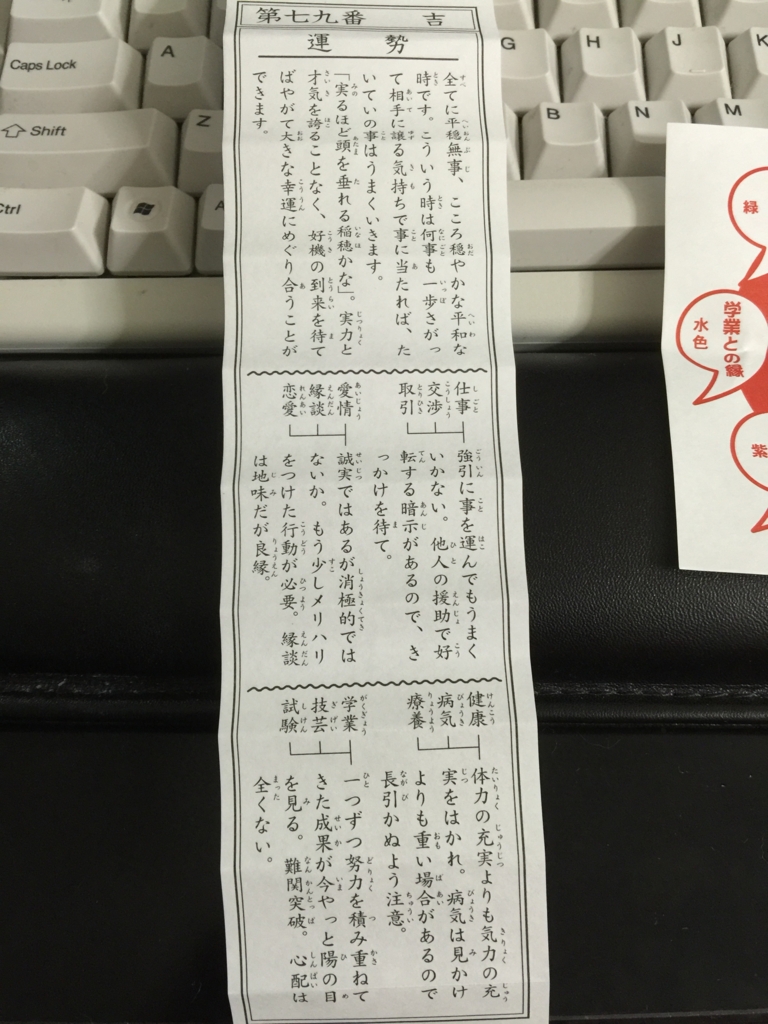 第七九番 吉
運勢
全てに平穏無事、こころ穏やかな平和な
時です。こういう時は何事も一歩さがっ
て相手に譲る気持ちで事に当たれば、た
いていの事はうまくいきます。
「実るほど頭を垂れる稲穂かな」。実力と
才気を誇ることなく、好機の到来を待て
ばやがて大きな幸運にめぐり合うことが
できます。
仕事
交渉
取引
強引に事を運んでもうまく
いかない。他人の援助で好
転する暗示があるので、き
っかけを待て。
愛情
縁談
恋愛
誠実ではあるが消極的では
ないか。もう少しメリハリ
をつけた行動が必要。縁談
は地味だが良縁。
健康
病気
療養
体力の充実よりも気力の充
実をはかれ。病気は見かけ
よりも重い場合があるので
長引かぬよう注意。
学業
技芸
試験
一つずつ努力を積み重ねて
きた成果が今やっと陽の目
を見る。難関突破。心配は
全くない。
緑
学業との縁
水色
紫
Caps Lock
A
G
H
J
K
Shift
Z
B
N
M
Ctrl
A